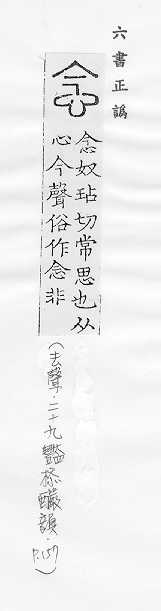 六書正譌
念
念奴玷切常思也从
心今聲俗作念非
(去聲.二十九豔㮇釅韻.P.157)